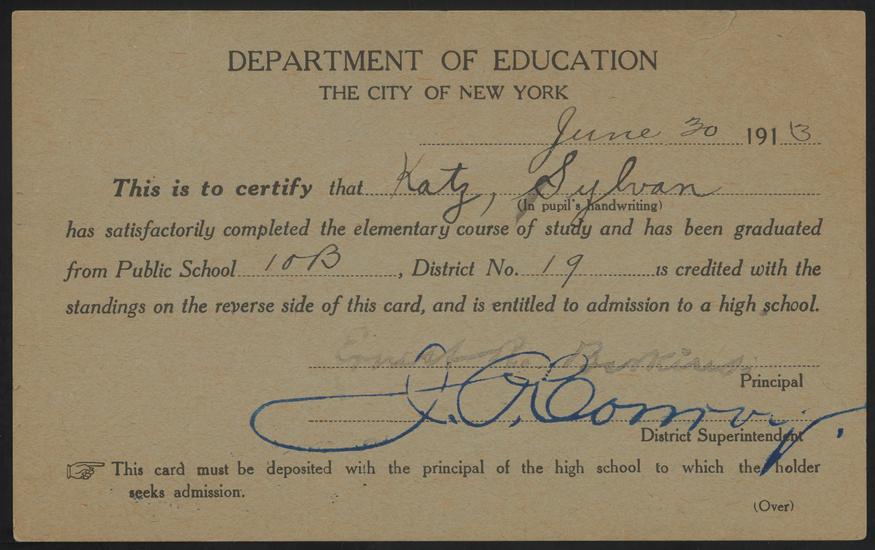 DEPARTMENT OF EDUCATION
THE CITY OF NEW YORK
June 30 1913
This is to certify that Katz, Sylvan
(In pupil's handwriting)
has satisfactorily completed the elementary course of study and has been graduated
from Public School 10B, District No. 19 is credited with the
standings on the reverse side of this card, and is entitled to admission to a high school.
Ernest R.
Principal
Conroy.
District Superintendent
This card must be deposited with the principal of the high school to which the holder
seeks admission.
(Over)